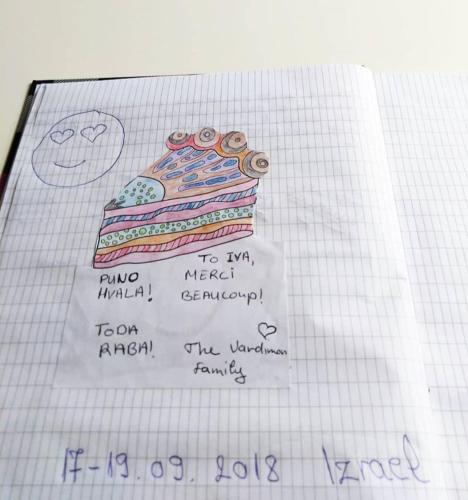 PUNO
HVALA!
TODA
RABA!
TO IVA,
MERCi
BEAUCOUP!
The Vardimon
family
17-19.09. 2018 Izrael